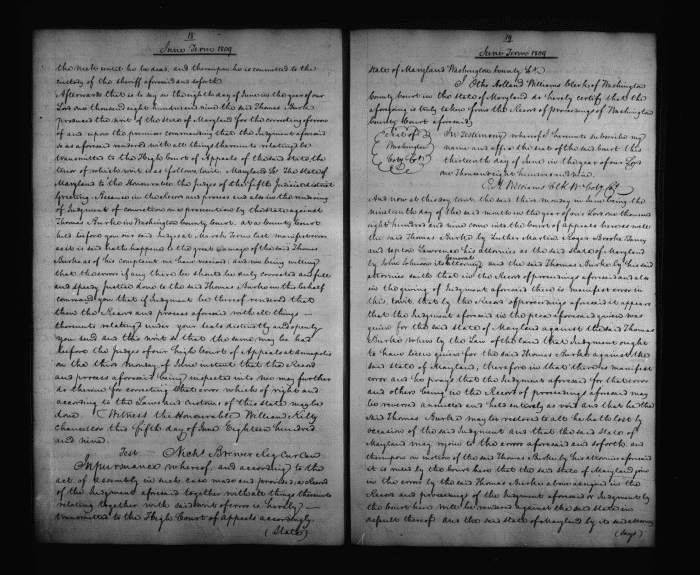 18
June Term 1809
the neck until he be dead, and thereupon he is committed to the
custody of the sheriff aforesaid and so forth
Afterwards that is to say on the eighth day of June in the year of our
Lord one thousand eight hundred and nine the said Thomas Burke
produced the writ of the State of Maryland for the correcting of error
of and upon the premises commanding that the Judgment aforesaid
so as aforesaid rendered with all things thereunto relating be
transmitted to the High Court of Appeals of the said State, the
tenor of which writ is as follows to wit. Maryland Sc. The State of
Maryland to the Honourable the Judges of the fifth Judicial district
Greeting, Because in the record and process and also in the rendering
of Judgment of conviction on a prosecution by the State against
Thomas Burke in Washington County Court, at a County Court
held before you our said Judges at March Term last manifest error
as it is said hath happened to the great damage of the said Thomas
Burke as of his complaint we have received, and we being willing
that the error if any there be should be duly corrected and full
and speedy justice done to the said Thomas Burke in this behalf
command you that if Judgment be thereof rendered that
then the Record and process aforesaid with all things
thereunto relating under your seals distinctly and openly
you send and this writ so that the same may be had
before the Judges of our High Court of Appeals at Annapolis
on the third monday of June instant that the Record
and process aforesaid being inspected into we may further
do thereon for correcting that error which of right and
according to the Laws and Customs of this State may be
done. Witness the Honourable William Kilty
Chancellor this fifth day of June Eighteen hundred
and nine.
Test Nichs Brewer Reg Cur Can
In pursuance whereof, and according to the
act of assembly in such case made and provided, a Record
of the Judgment aforesaid together with all things thereunto
relating together with said writ of error is hereby
transmitted to the High Court of appeals accordingly.
(State)
19
June Term 1809
State of Maryland Washington County Sc.
I Otho Holland Williams Clerk of Washington
County Court in the State of Maryland do hereby certify that the
aforegoing is truly taken from the Record of proceedings of Washington
County Court aforesaid
Seal of
Washington
Coty Cot.
In Testimony whereof I hereunto subscribe my
name and affix the seal of the said Court this
thirteenth day of June in the year of our Lord
one thousand eight hundred and nine.
O. H. Williams Clk Wn Coty Cot
And now at this day to wit the said third monday in June being the
nineteenth day of the said month in the year of our Lord one thousand
eight hundred and nine come into the Court of appeals here as well
the said Thomas Burke by Luther Martin, Roger Brooke Taney
and Upton Lawrence his attornies as the said State of Maryland
by John Johnson its attorney General and the said Thomas Burke by his said
attornies saith that in the Record of proceedings aforesaid and also
in the giving of Judgment aforesaid there is manifest error in
this, to wit, that by the Record of proceedings aforesaid it appears
that the Judgment aforesaid in the plea aforesaid given was
given for the said State of Maryland against the said Thomas
Burke when by the Law of the land that Judgment ought
to have been given for the said Thomas Burke against the
said State of Maryland, therefore in that there is manifest
error and he prays that the Judgment aforesaid for that error
and others being in the Record of proceedings aforesaid may
be reversed annulled and held entirely as void and that he the
said Thomas Burke may be restored to all he hath lost by
occasion of the said Judgment and that the said State of
Maryland may rejoin to the errors aforesaid and so forth. and
thereupon on motion of the said Thomas Burke by his attornies aforesaid
it is ruled by the Court here that the said State of Maryland join
in the error by the said Thomas Burke above assigned in the
Record and proceedings of the Judgment aforesaid or Judgment by
the Court here will be rendered against the said State in
default thereof and the said State of Maryland by its said attorney
(says)